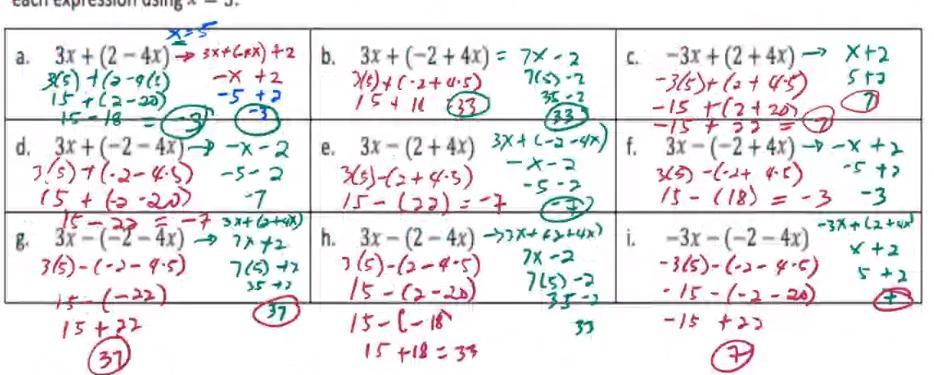 x=5
a. 3x + (2 − 4x) → 3x+(-4x)+2
3(5)+(2-4(5)
15+(2-20)
15-18 = -3
-x+2
-5+2
-3
b. 3x + (−2 + 4x) = 7x-2
3(5)+(-2+4·5)
15+18 33
7(5)-2
35-2
33
c. −3x + (2 + 4x) → x+2
-3(5)+(2+4·5)
-15+(2+20)
-15+22 = 7
5+2
7
d. 3x + (−2 − 4x) → -x-2
3(5)+(-2-4·5)
15+(-2-20)
15-22 = -7
-5-2
-7
e. 3x − (2 + 4x) 3x+(-2-4x)
3(5)-(2+4·5)
15-(22) = -7
-x-2
-5-2
-7
f. 3x − (−2 + 4x) → -x+2
3(5)-(-2+4·5)
15-(18) = -3
-5+2
-3
g. 3x − (−2 − 4x) → 3x+(2+4x)
3(5)-(-2-4·5)
15-(-22)
15+22
37
7x+2
7(5)+2
35+2
37
h. 3x − (2 − 4x) → 3x+(-2+4x)
3(5)-(2-4·5)
15-(2-20)
15-(-18)
15+18=33
7x-2
7(5)-2
35-2
33
i. −3x − (−2 − 4x) -3x+(2+4x)
-3(5)-(-2-4·5)
-15-(-2-20)
-15+22
7
x+2
5+2
7